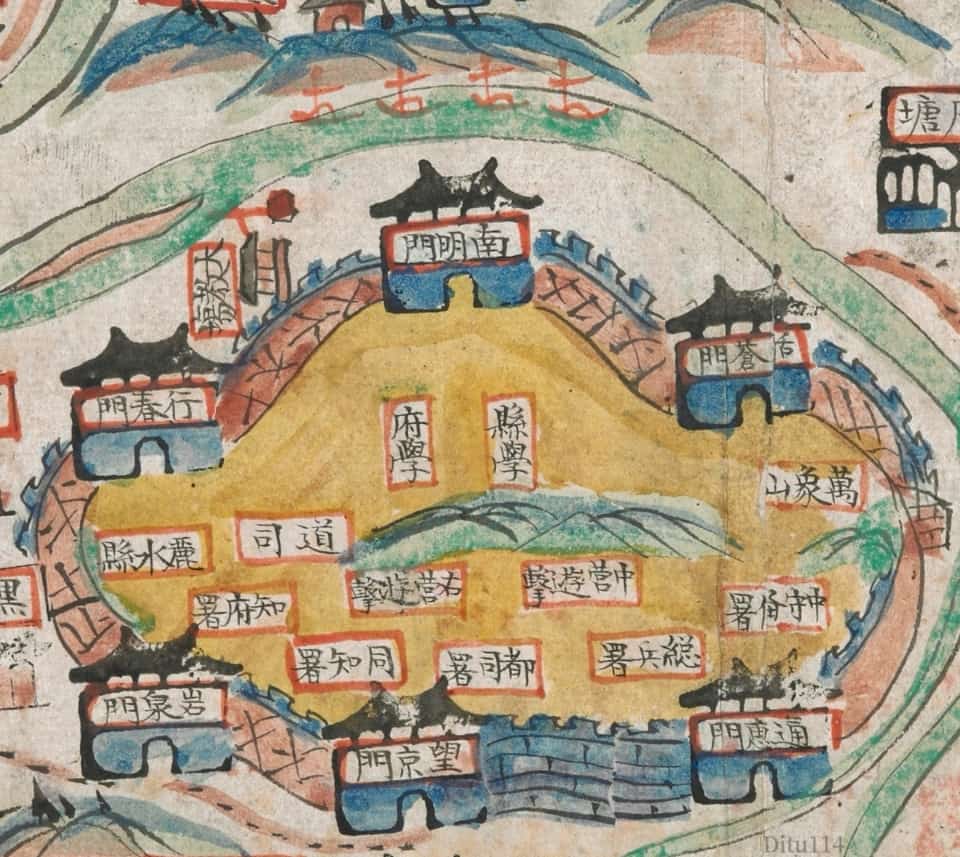 塘
南明門
括蒼門
行春門
府學
縣學
萬象山
道司
麗水縣
中營遊擊
右營遊擊
中守俻署
知府署
総兵署
都司署
同知署
黑
岩泉門
通惠門
望京門
Ditu114